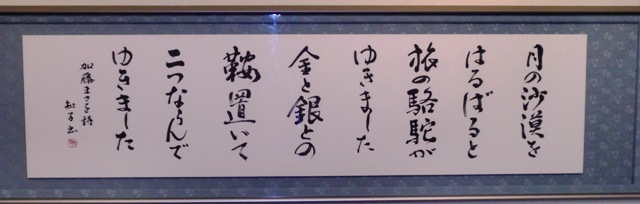 月の沙漠を
はるばると
旅の駱駝が
ゆきました
金と銀との
鞍置いて
二つならんで
ゆきました
加藤まさを詩